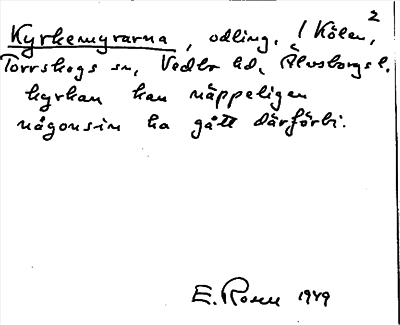 2
Kyrkemyrarna, odling, / Kölen,
Torrskogs sn, Vedbo hd, Älvsborgs l.
kyrkan kan näppeligen
någonsin ha gått därförbi.
E. Rosen 1949